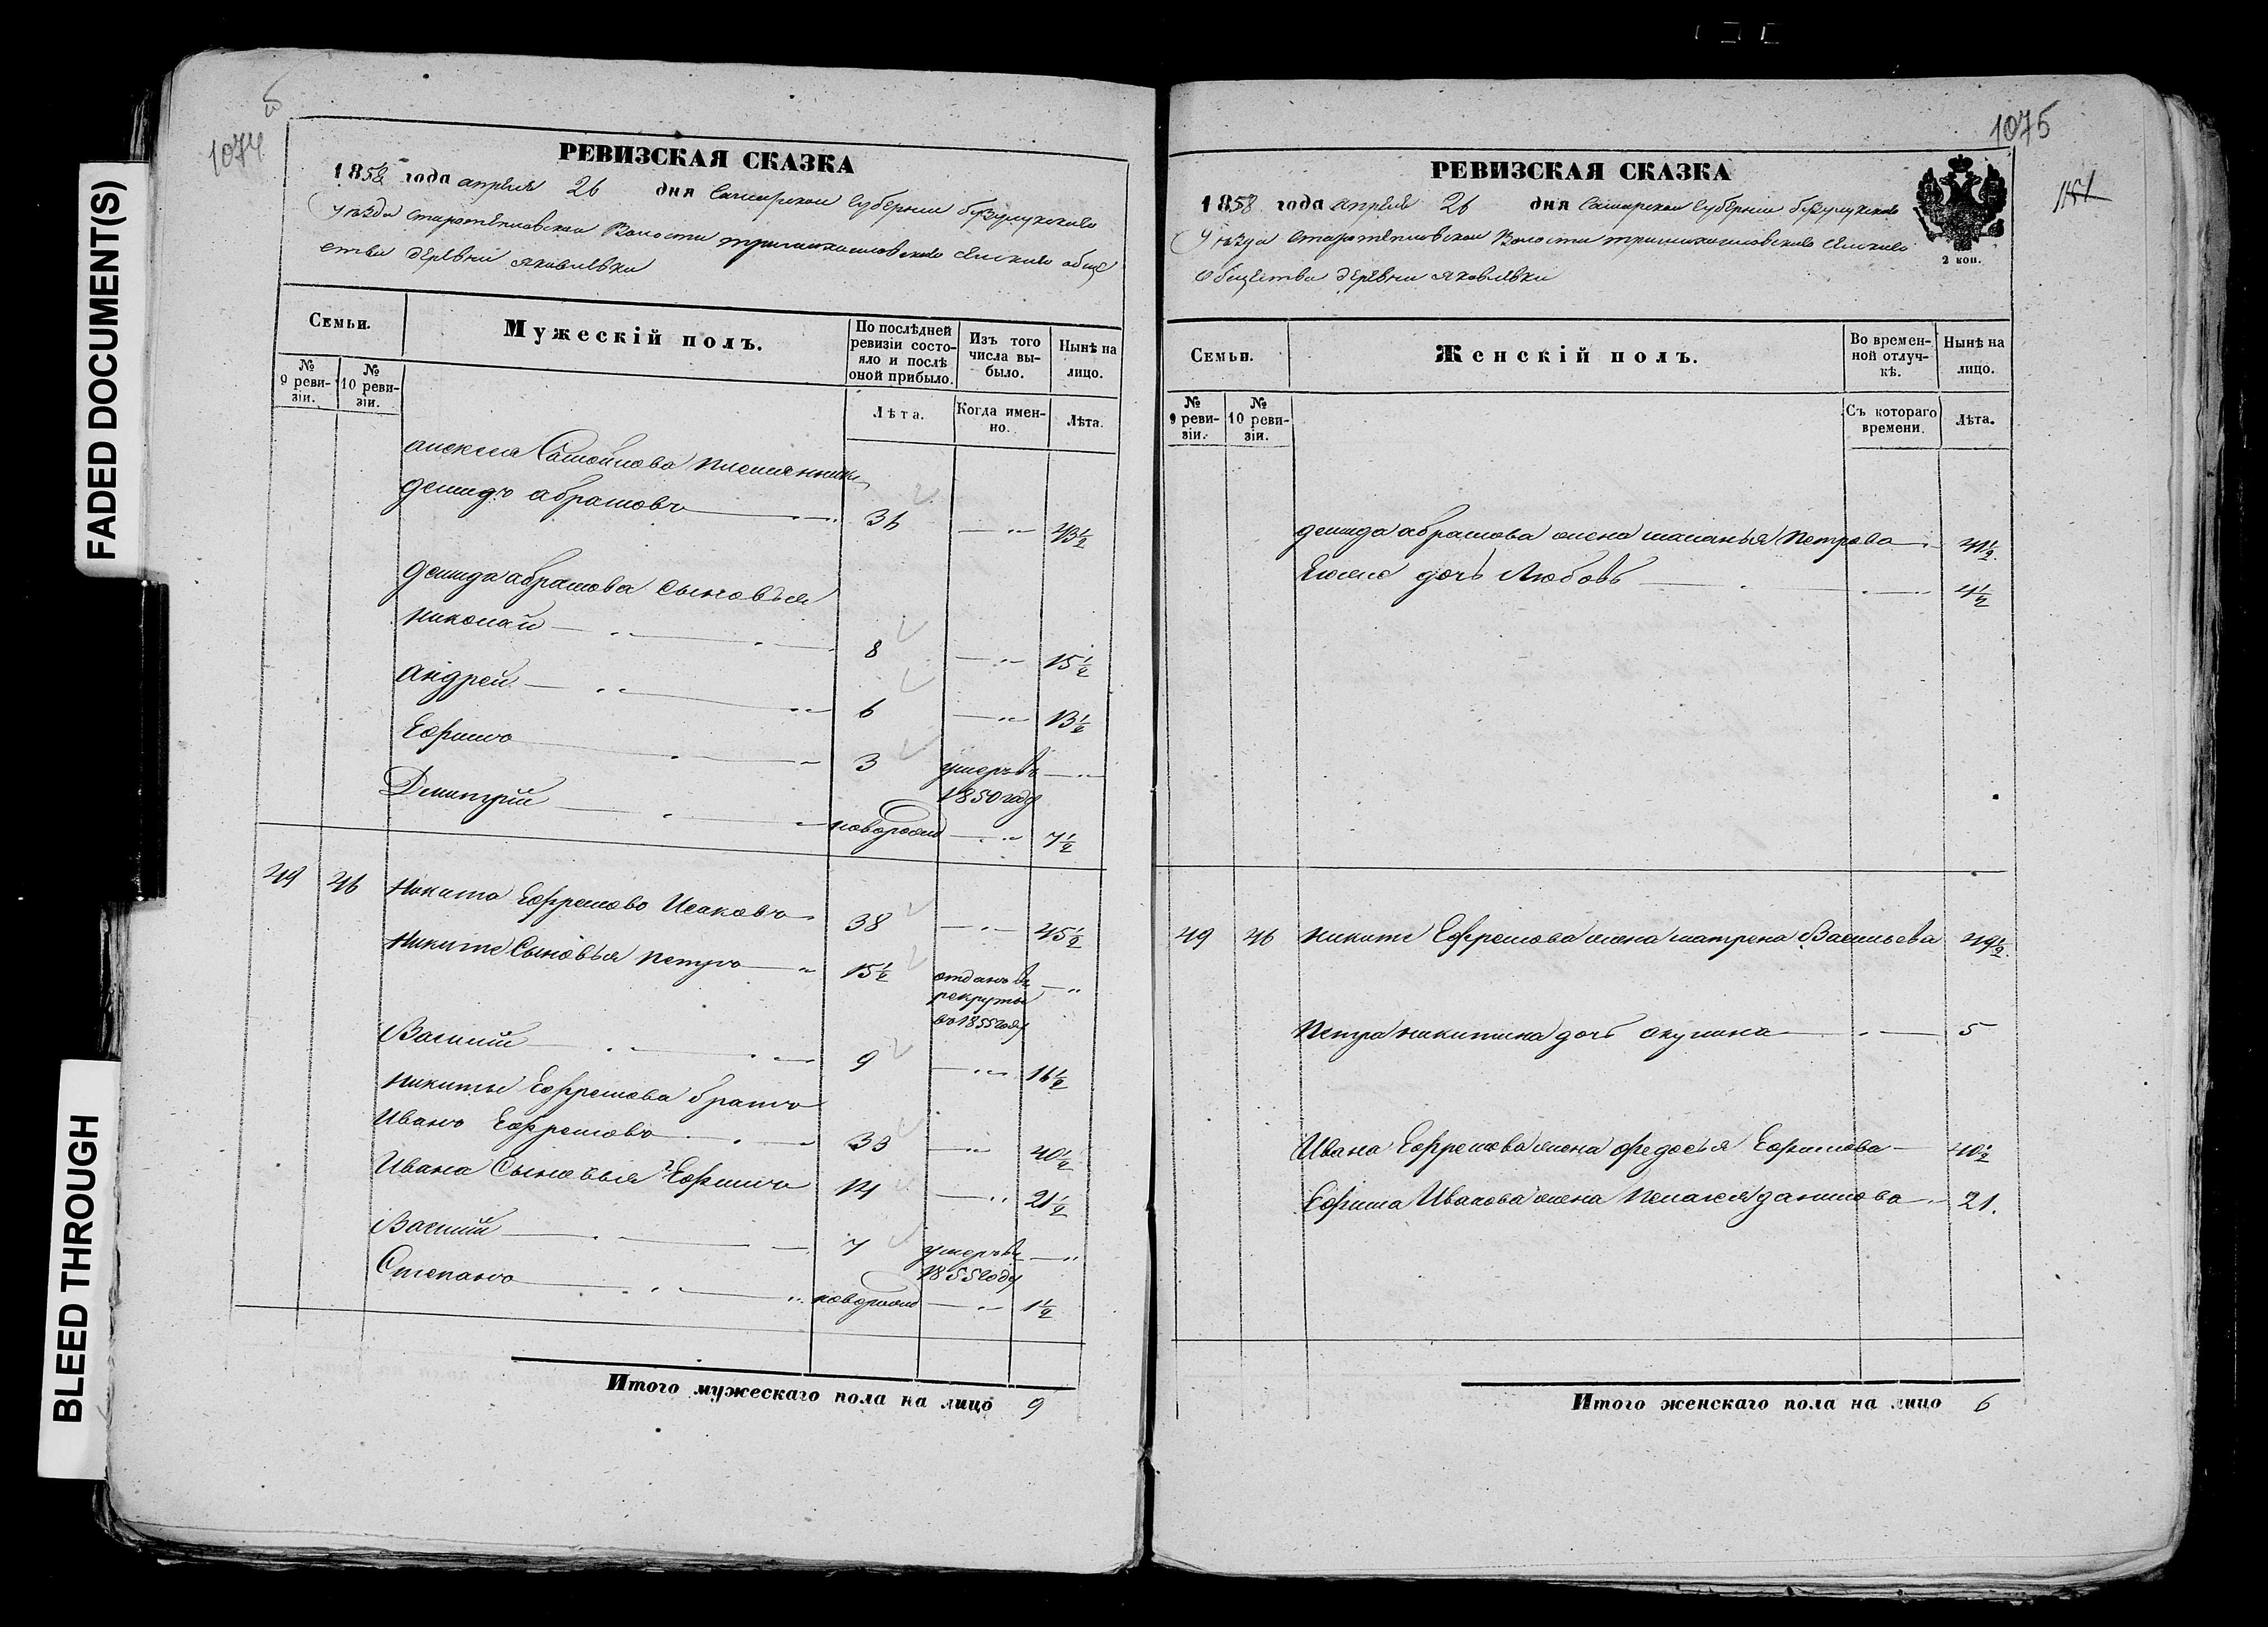 FADED DOCUMENT(S)
BLEED THROUGH
1074
РЕВИЗСКАЯ СКАЗКА
1858 года апреля 26 дня Самарской Губернии бузулукскаго
Уѣзда старотепловской Волости обще
ства деревни яковлевки
Семьи.
Мужескій полъ.
По послѣдней ревизіи состояло и послѣ оной прибыло.
Изъ того числа выбыло.
Нынѣ на лицо.
№ 9 ревизіи.
№ 10 ревизіи.
Лѣта.
Когда именно.
Лѣта.
алексея Самойлова племянникъ
демидъ абрамовъ 36 43½
демида абрамова сыновья
николай 8 15½
андрей 6 13½
Ефимъ 3 умеръ въ
1850 году
Дмитрій новорожд 7½
49 46 Никита Ефремовъ Исаковъ 38 45½
Никиты Сыновья петръ 15½ отданъ въ
рекруты
въ 1855 году
Василий 9 16½
никиты Ефремова братъ
Иванъ Ефремовъ 33 40½
Ивана Сыновья Ефимъ 14 21½
Василий 7 умеръ въ
1855 году
Степанъ новорожд 1½
Итого мужескаго пола на лицо 9
1075
1151
РЕВИЗСКАЯ СКАЗКА
1858 года апреля 26 дня Самарской Губернии бузулукскаго
Уѣзда старотепловской Волости
Общества деревни яковлевки
2 коп.
Семьи.
Женскій полъ.
Во временной отлучкѣ.
Нынѣ на лицо.
№ 9 ревизіи.
№ 10 ревизіи.
Съ котораго времени.
Лѣта.
демида абрамова жена маланья Петрова 41½
Ево дочь Любовь 4½
49 46 никиты Ефремова жена матрена Васильева 49½
Петра никитина дочь акулина 5
Ивана Ефремова жена федосья Ефимова 40½
Ефима Иванова жена Пелагея данилова 21.
Итого женскаго пола на лицо 6